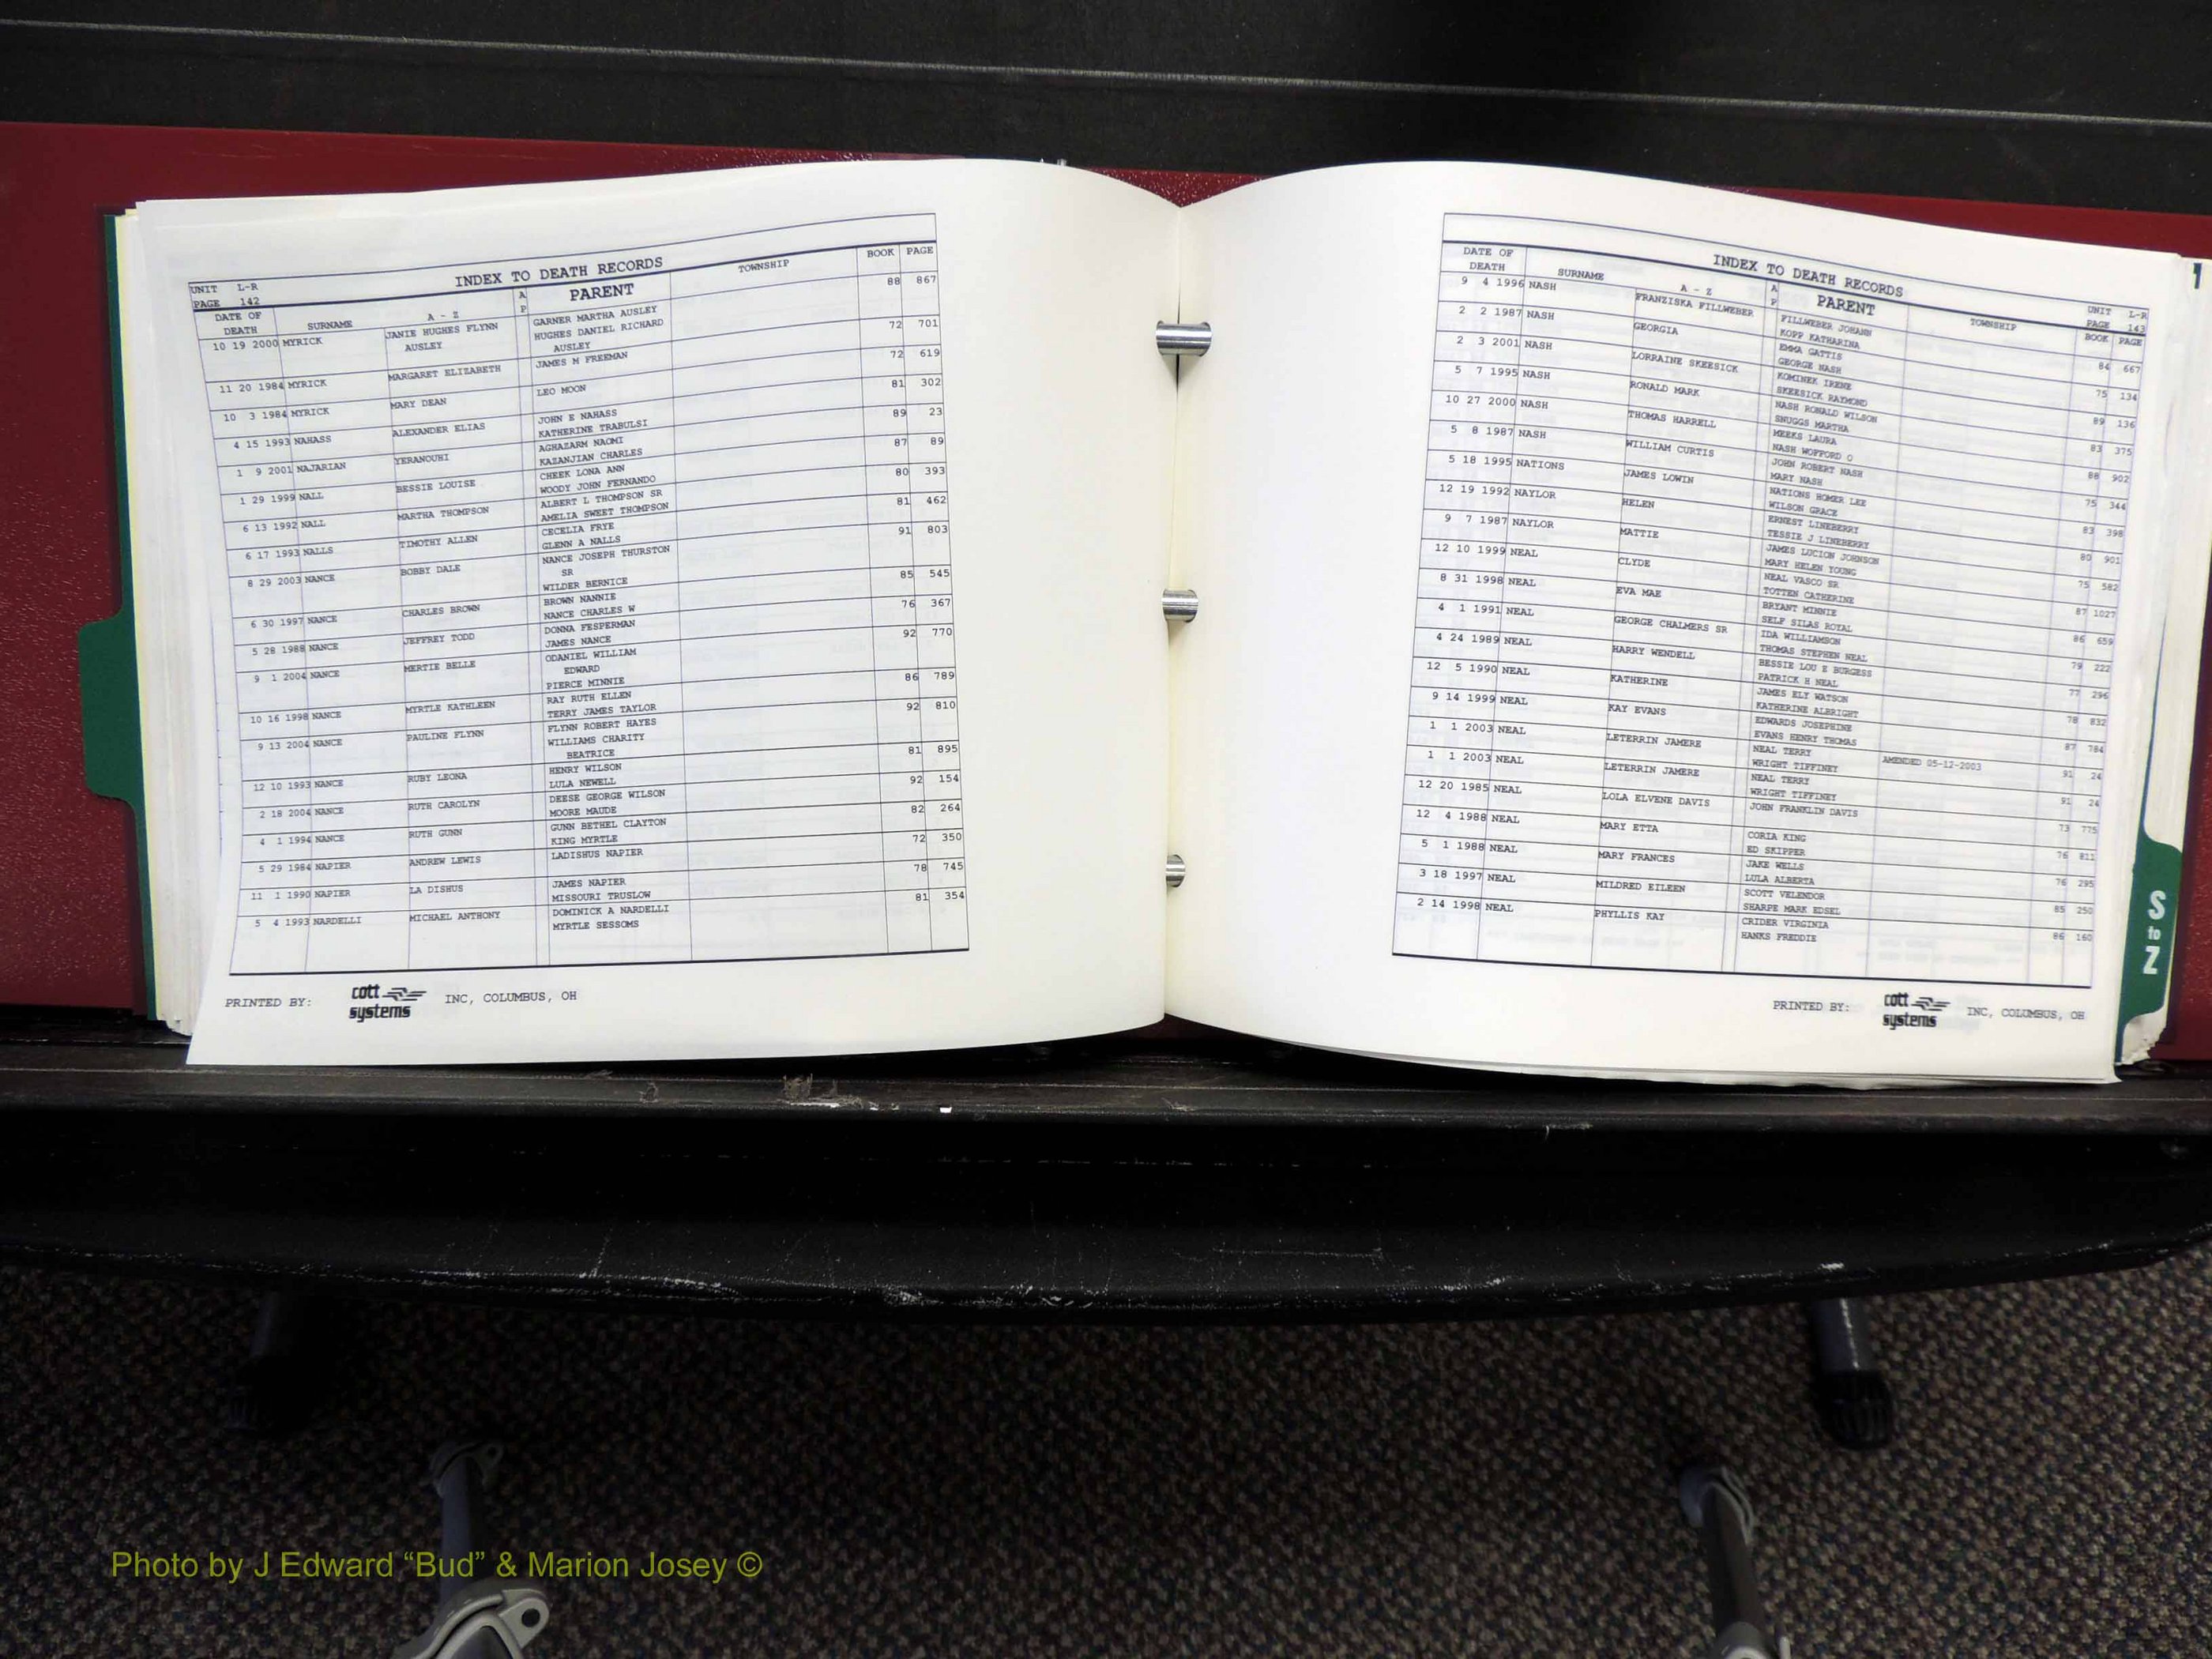 INDEX TO DEATH RECORDS
UNIT L-R
PAGE 142
DATE OF DEATH SURNAME A - Z A P PARENT TOWNSHIP BOOK PAGE
10 19 2000 MYRICK JANIE HUGHES FLYNN GARNER MARTHA AUSLEY 88 867
AUSLEY HUGHES DANIEL RICHARD
AUSLEY
11 20 1984 MYRICK MARGARET ELIZABETH JAMES M FREEMAN 72 701
10 3 1984 MYRICK MARY DEAN LEO MOON 72 619
4 15 1993 NAHASS ALEXANDER ELIAS JOHN E NAHASS 81 302
KATHERINE TRABULSI
1 9 2001 NAJARIAN YERANOUHI AGHAZARM NAOMI 89 23
KAZANJIAN CHARLES
1 29 1999 NALL BESSIE LOUISE CHEEK LONA ANN 87 89
WOODY JOHN FERNANDO
6 13 1992 NALL MARTHA THOMPSON ALBERT L THOMPSON SR 80 393
AMELIA SWEET THOMPSON
6 17 1993 NALLS TIMOTHY ALLEN CECELIA FRYE 81 462
GLENN A NALLS
8 29 2003 NANCE BOBBY DALE NANCE JOSEPH THURSTON 91 803
SR
WILDER BERNICE
6 30 1997 NANCE CHARLES BROWN BROWN NANNIE 85 545
NANCE CHARLES W
5 28 1988 NANCE JEFFREY TODD DONNA FESPERMAN 76 367
JAMES NANCE
9 1 2004 NANCE MERTIE BELLE ODANIEL WILLIAM 92 770
EDWARD
PIERCE MINNIE
10 16 1998 NANCE MYRTLE KATHLEEN RAY RUTH ELLEN 86 789
TERRY JAMES TAYLOR
9 13 2004 NANCE PAULINE FLYNN FLYNN ROBERT HAYES 92 810
WILLIAMS CHARITY
BEATRICE
12 10 1993 NANCE RUBY LEONA HENRY WILSON 81 895
LULA NEWELL
2 18 2004 NANCE RUTH CAROLYN DEESE GEORGE WILSON 92 154
MOORE MAUDE
4 1 1994 NANCE RUTH GUNN GUNN BETHEL CLAYTON 82 264
KING MYRTLE
5 29 1984 NAPIER ANDREW LEWIS LADISHUS NAPIER 72 350
11 1 1990 NAPIER LA DISHUS JAMES NAPIER 78 745
MISSOURI TRUSLOW
5 4 1993 NARDELLI MICHAEL ANTHONY DOMINICK A NARDELLI 81 354
MYRTLE SESSOMS
PRINTED BY: cott systems INC, COLUMBUS, OH
INDEX TO DEATH RECORDS
UNIT L-R
PAGE 143
DATE OF DEATH SURNAME A - Z A P PARENT TOWNSHIP BOOK PAGE
9 4 1996 NASH FRANZISKA FILLWEBER FILLWEBER JOHANN 84 667
KOPP KATHARINA
2 2 1987 NASH GEORGIA EMMA GATTIS 75 134
GEORGE NASH
2 3 2001 NASH LORRAINE SKEESICK KOMINEK IRENE 89 136
SKEESICK RAYMOND
5 7 1995 NASH RONALD MARK NASH RONALD WILSON 83 375
SNUGGS MARTHA
10 27 2000 NASH THOMAS HARRELL MEEKS LAURA 88 902
NASH WOFFORD O
5 8 1987 NASH WILLIAM CURTIS JOHN ROBERT NASH 75 344
MARY NASH
5 18 1995 NATIONS JAMES LOWIN NATIONS HOMER LEE 83 398
WILSON GRACE
12 19 1992 NAYLOR HELEN ERNEST LINEBERRY 80 901
TESSIE J LINEBERRY
9 7 1987 NAYLOR MATTIE JAMES LUCION JOHNSON 75 582
MARY HELEN YOUNG
12 10 1999 NEAL CLYDE NEAL VASCO SR 87 1027
TOTTEN CATHERINE
8 31 1998 NEAL EVA MAE BRYANT MINNIE 86 659
SELF SILAS ROYAL
4 1 1991 NEAL GEORGE CHALMERS SR IDA WILLIAMSON 79 222
THOMAS STEPHEN NEAL
4 24 1989 NEAL HARRY WENDELL BESSIE LOU E BURGESS 77 296
PATRICK H NEAL
12 5 1990 NEAL KATHERINE JAMES ELY WATSON 78 832
KATHERINE ALBRIGHT
9 14 1999 NEAL KAY EVANS EDWARDS JOSEPHINE 87 784
EVANS HENRY THOMAS
1 1 2003 NEAL LETERRIN JAMERE NEAL TERRY AMENDED 05-12-2003 91 24
WRIGHT TIFFINEY
1 1 2003 NEAL LETERRIN JAMERE NEAL TERRY 91 24
WRIGHT TIFFINEY
12 20 1985 NEAL LOLA ELVENE DAVIS JOHN FRANKLIN DAVIS 73 775
12 4 1988 NEAL MARY ETTA CORIA KING 76 811
ED SKIPPER
5 1 1988 NEAL MARY FRANCES JAKE WELLS 76 295
LULA ALBERTA
3 18 1997 NEAL MILDRED EILEEN SCOTT VELENDOR 85 250
SHARPE MARK EDSEL
2 14 1998 NEAL PHYLLIS KAY CRIDER VIRGINIA 86 160
HANKS FREDDIE
PRINTED BY: cott systems INC, COLUMBUS, OH
S to Z
Photo by J Edward “Bud” & Marion Josey ©